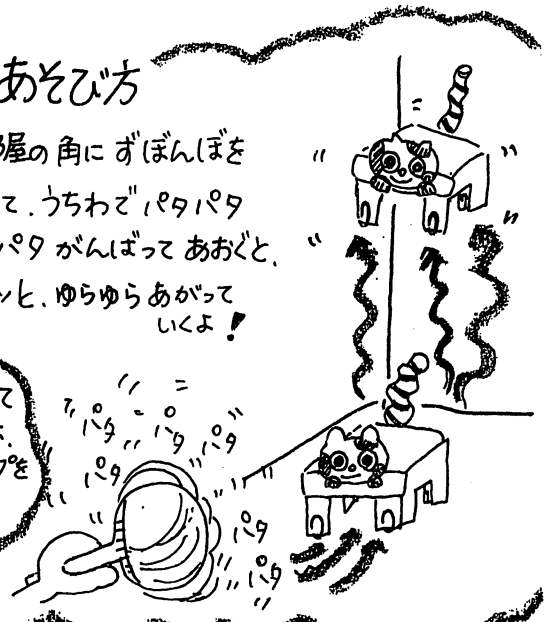 あそび方
屋の角に ずぼんぼを
て、うちわで パタパタ
パタ がんばって あおぐと、
ッと、ゆらゆら あがって
いくよ!
て
パタ
パタ
パタ
パタ
パタ
パタ